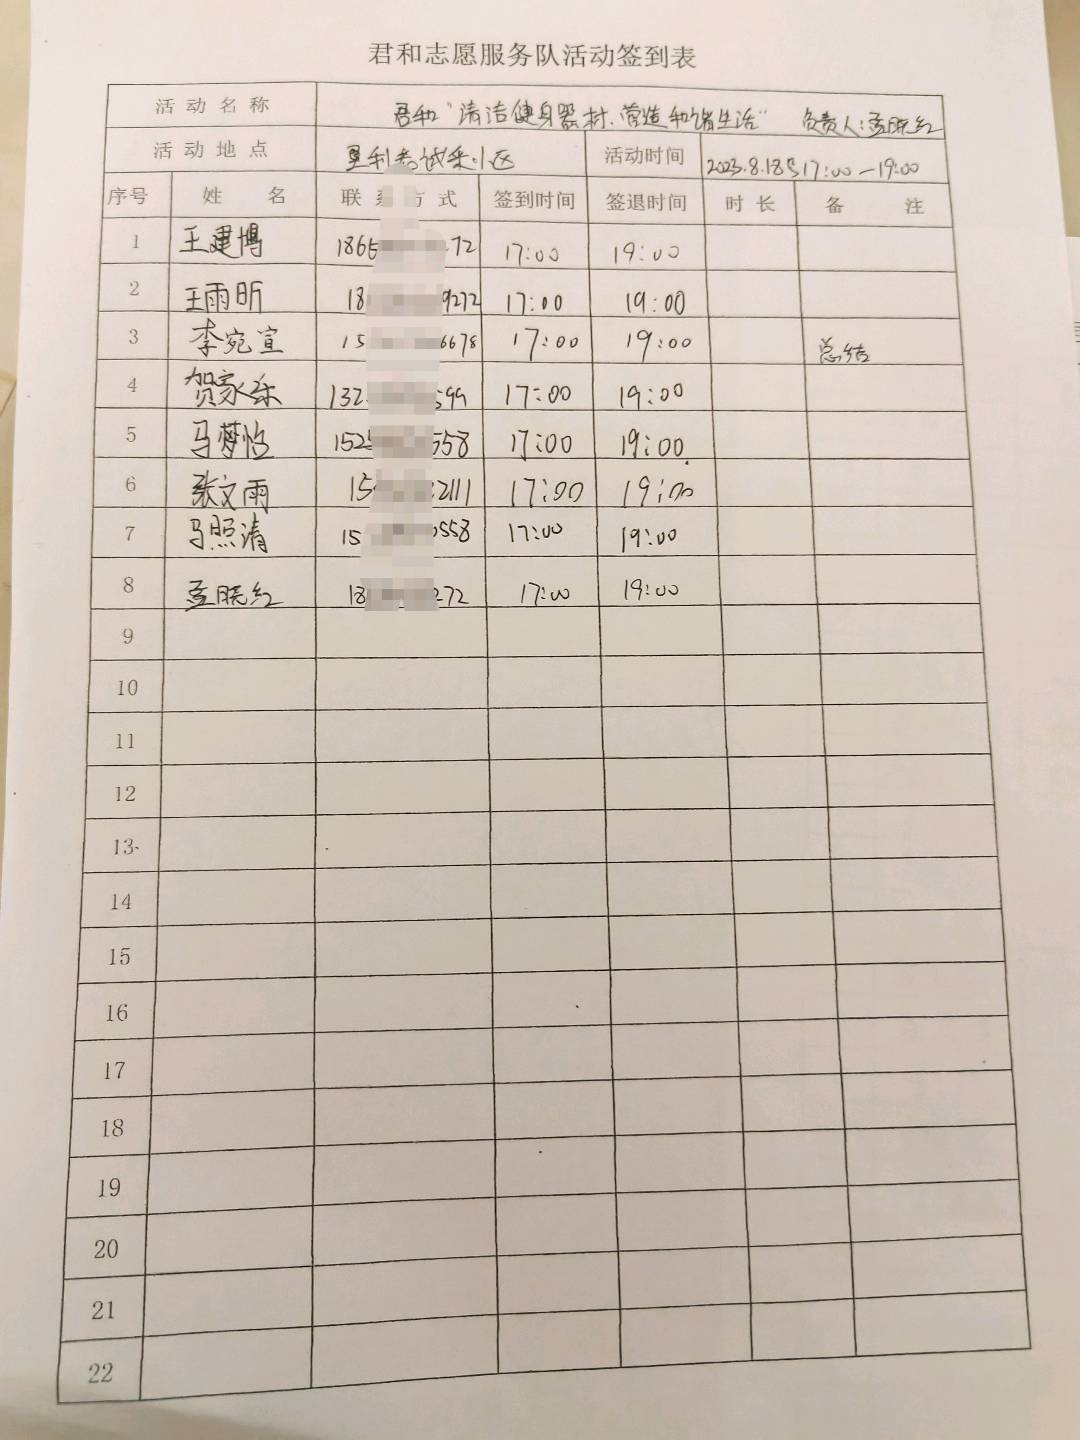 君和志愿服务队活动签到表
活动名称 君和“清洁健身器材、营造和谐生活” 负责人:孟晓红
活动地点 试采小区 活动时间 2023.8.18日17:00—19:00
序号 姓名 联系方式 签到时间 签退时间 时长 备注
1 王建博 1865 72 17:00 19:00
2 王雨昕 18 9272 17:00 19:00
3 李宛宣 15 6678 17:00 19:00 总结
4 贺家乐 132 599 17:00 19:00
5 马梦怡 152 558 17:00 19:00
6 张文雨 15 2111 17:00 19:00
7 马照清 15 0558 17:00 19:00
8 孟晓红 18 272 17:00 19:00
9
10
11
12
13
14
15
16
17
18
19
20
21
22